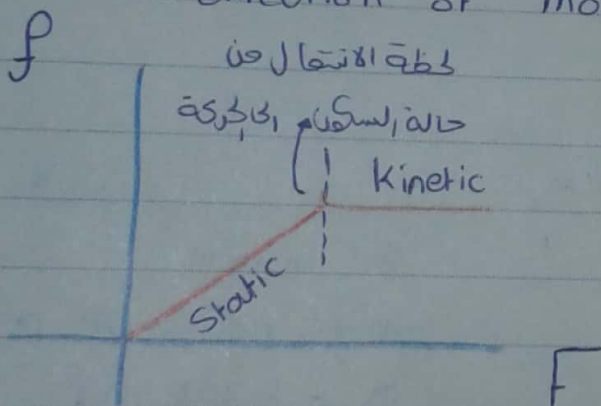 f
لحظة الانتقال من
حالة السكون الى الحركة
Kinetic
Static
F